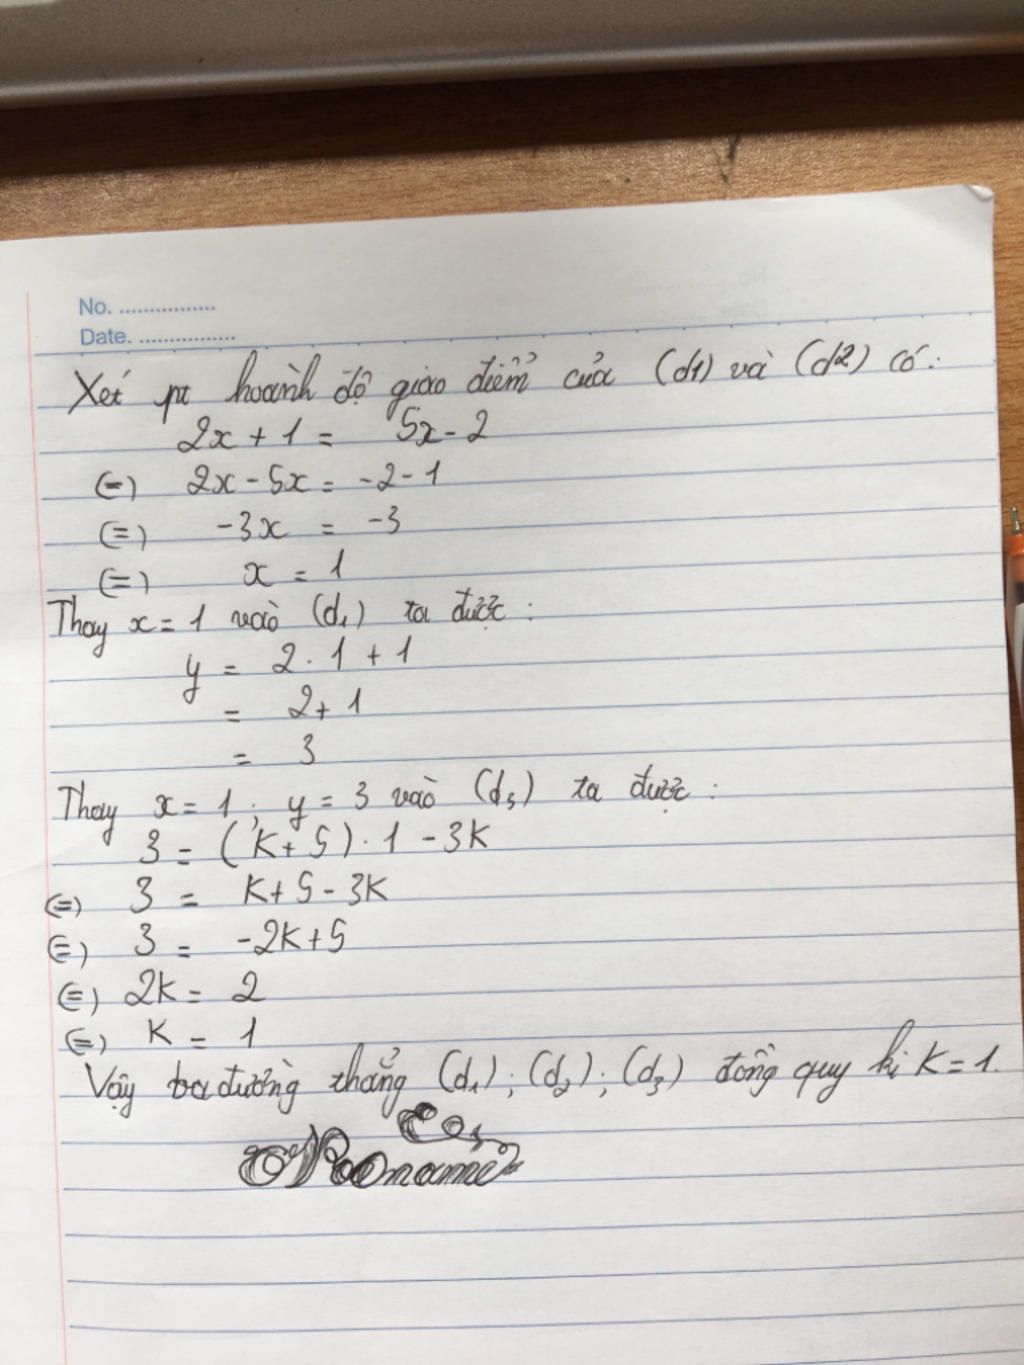 No. ................
Date. ................
Xét pt hoành độ giao điểm của (d1) và (d2) có:
2x + 1 = 5x - 2
(=) 2x - 5x = -2 - 1
(=) -3x = -3
(=) x = 1
Thay x = 1 vào (d₁) ta được:
y = 2 . 1 + 1
= 2 + 1
= 3
Thay x = 1 ; y = 3 vào (d₃) ta được:
3 = (K + 5) . 1 - 3K
(=) 3 = K + 5 - 3K
(=) 3 = -2K + 5
(=) 2K = 2
(=) K = 1
Vậy ba đường thẳng (d₁) ; (d₂) ; (d₃) đồng quy ki K = 1.